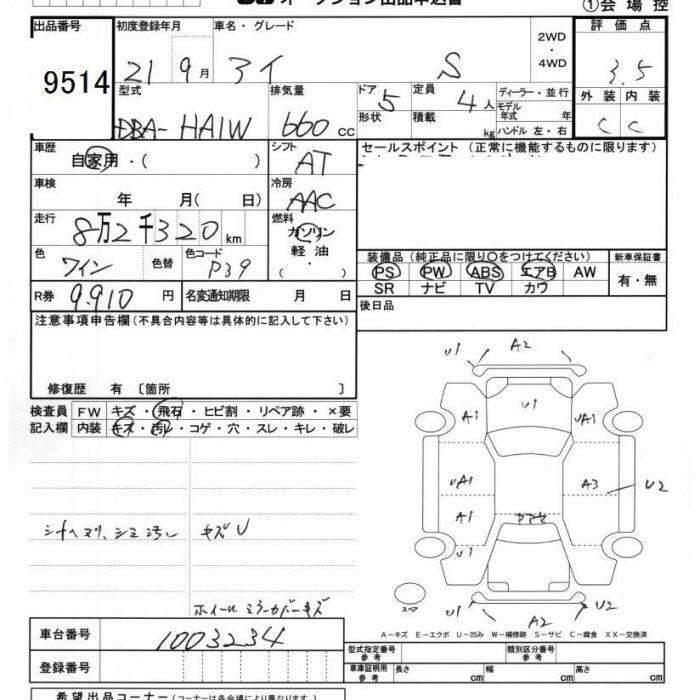 オークション出品申込書
①会場控
出品番号 初度登録年月 車名・グレード 評価点
9514 21 9月 アイ S 2WD・4WD 3.5
型式 排気量 ドア 定員 ディーラー・並行 外装 内装
DBA-HA1W 660cc 5 4人 モデル年式 年 C C
形状 積載 kg ハンドル 左・右
車歴 シフト セールスポイント(正常に機能するものに限ります)
自家用・( ) AT
車検 冷房
年 月( 日) AAC
走行 燃料
8万2千320km ガソリン・軽油・( )
色 色替 色コード 装備品(純正品に限り○をつけてください) 新車保証書
ワイン P39 PS PW ABS エアB AW 有・無
SR ナビ TV カワ
R券 9,910円 名変通知期限 月 日 後日品
注意事項申告欄(不具合内容等は具体的に記入して下さい)
修復歴 有〔箇所 〕
検査員 FW キズ・飛石・ヒビ割・リペア跡・×要
記入欄 内装 キズ・汚レ・コゲ・穴・スレ・キレ・破レ
U1 A2
A1 U1 UA1
UA1 A3 U2
A1
U1
シートヘタリ、シミ汚レ キズU
ホイール ミラーカバーキズ
スペア
U1 A2 U2
A-キズ E-エクボ U-凹み W-補修跡 S-サビ C-腐食 XX-交換済
車台番号 1003234
型式指定番号 参考 類別区分番号 参考
登録番号 車庫証明用 参考 長さ cm 幅 cm 高さ cm
希望出品コーナー(コーナーは各会場により異なります。)